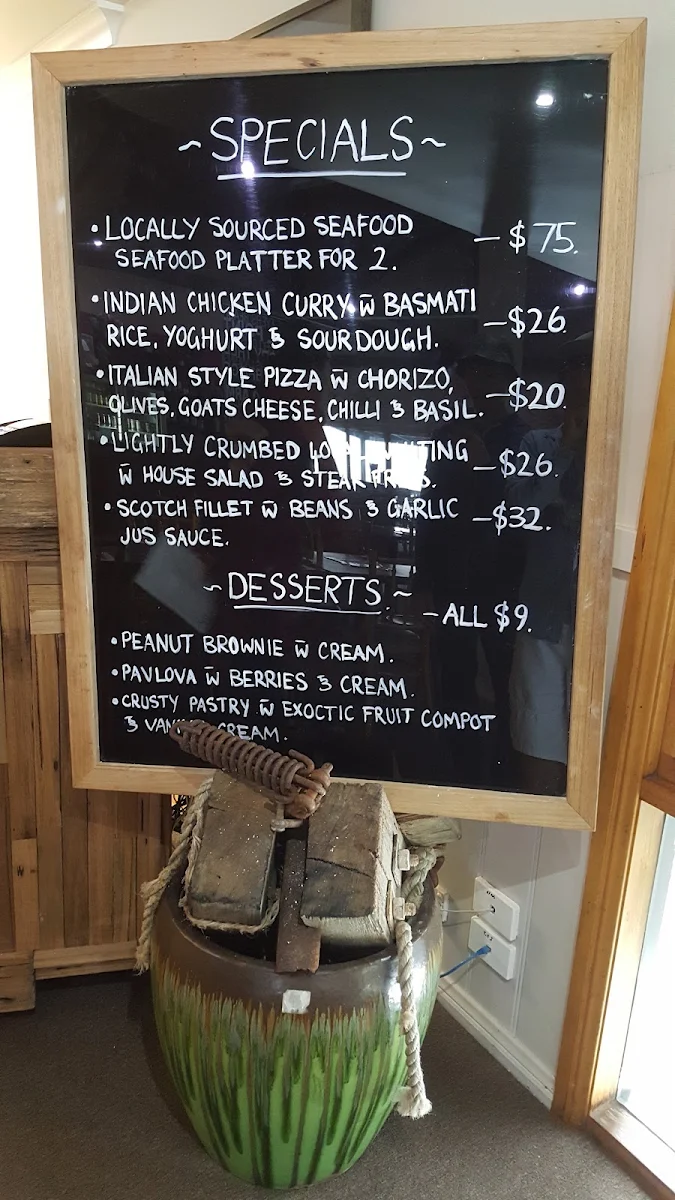 ~SPECIALS~
• LOCALLY SOURCED SEAFOOD
SEAFOOD PLATTER FOR 2. - $75.
• INDIAN CHICKEN CURRY w̄ BASMATI
RICE, YOGHURT & SOURDOUGH. - $26.
• ITALIAN STYLE PIZZA w̄ CHORIZO,
OLIVES, GOATS CHEESE, CHILLI & BASIL. - $20.
• LIGHTLY CRUMBED LOCAL WHITING
w̄ HOUSE SALAD & STEAK FRIES. - $26.
• SCOTCH FILLET w̄ BEANS & GARLIC - $32.
JUS SAUCE.
~DESSERTS~
- ALL $9.
• PEANUT BROWNIE w̄ CREAM.
• PAVLOVA w̄ BERRIES & CREAM.
• CRUSTY PASTRY w̄ EXOCTIC FRUIT COMPOT
& CREAM.